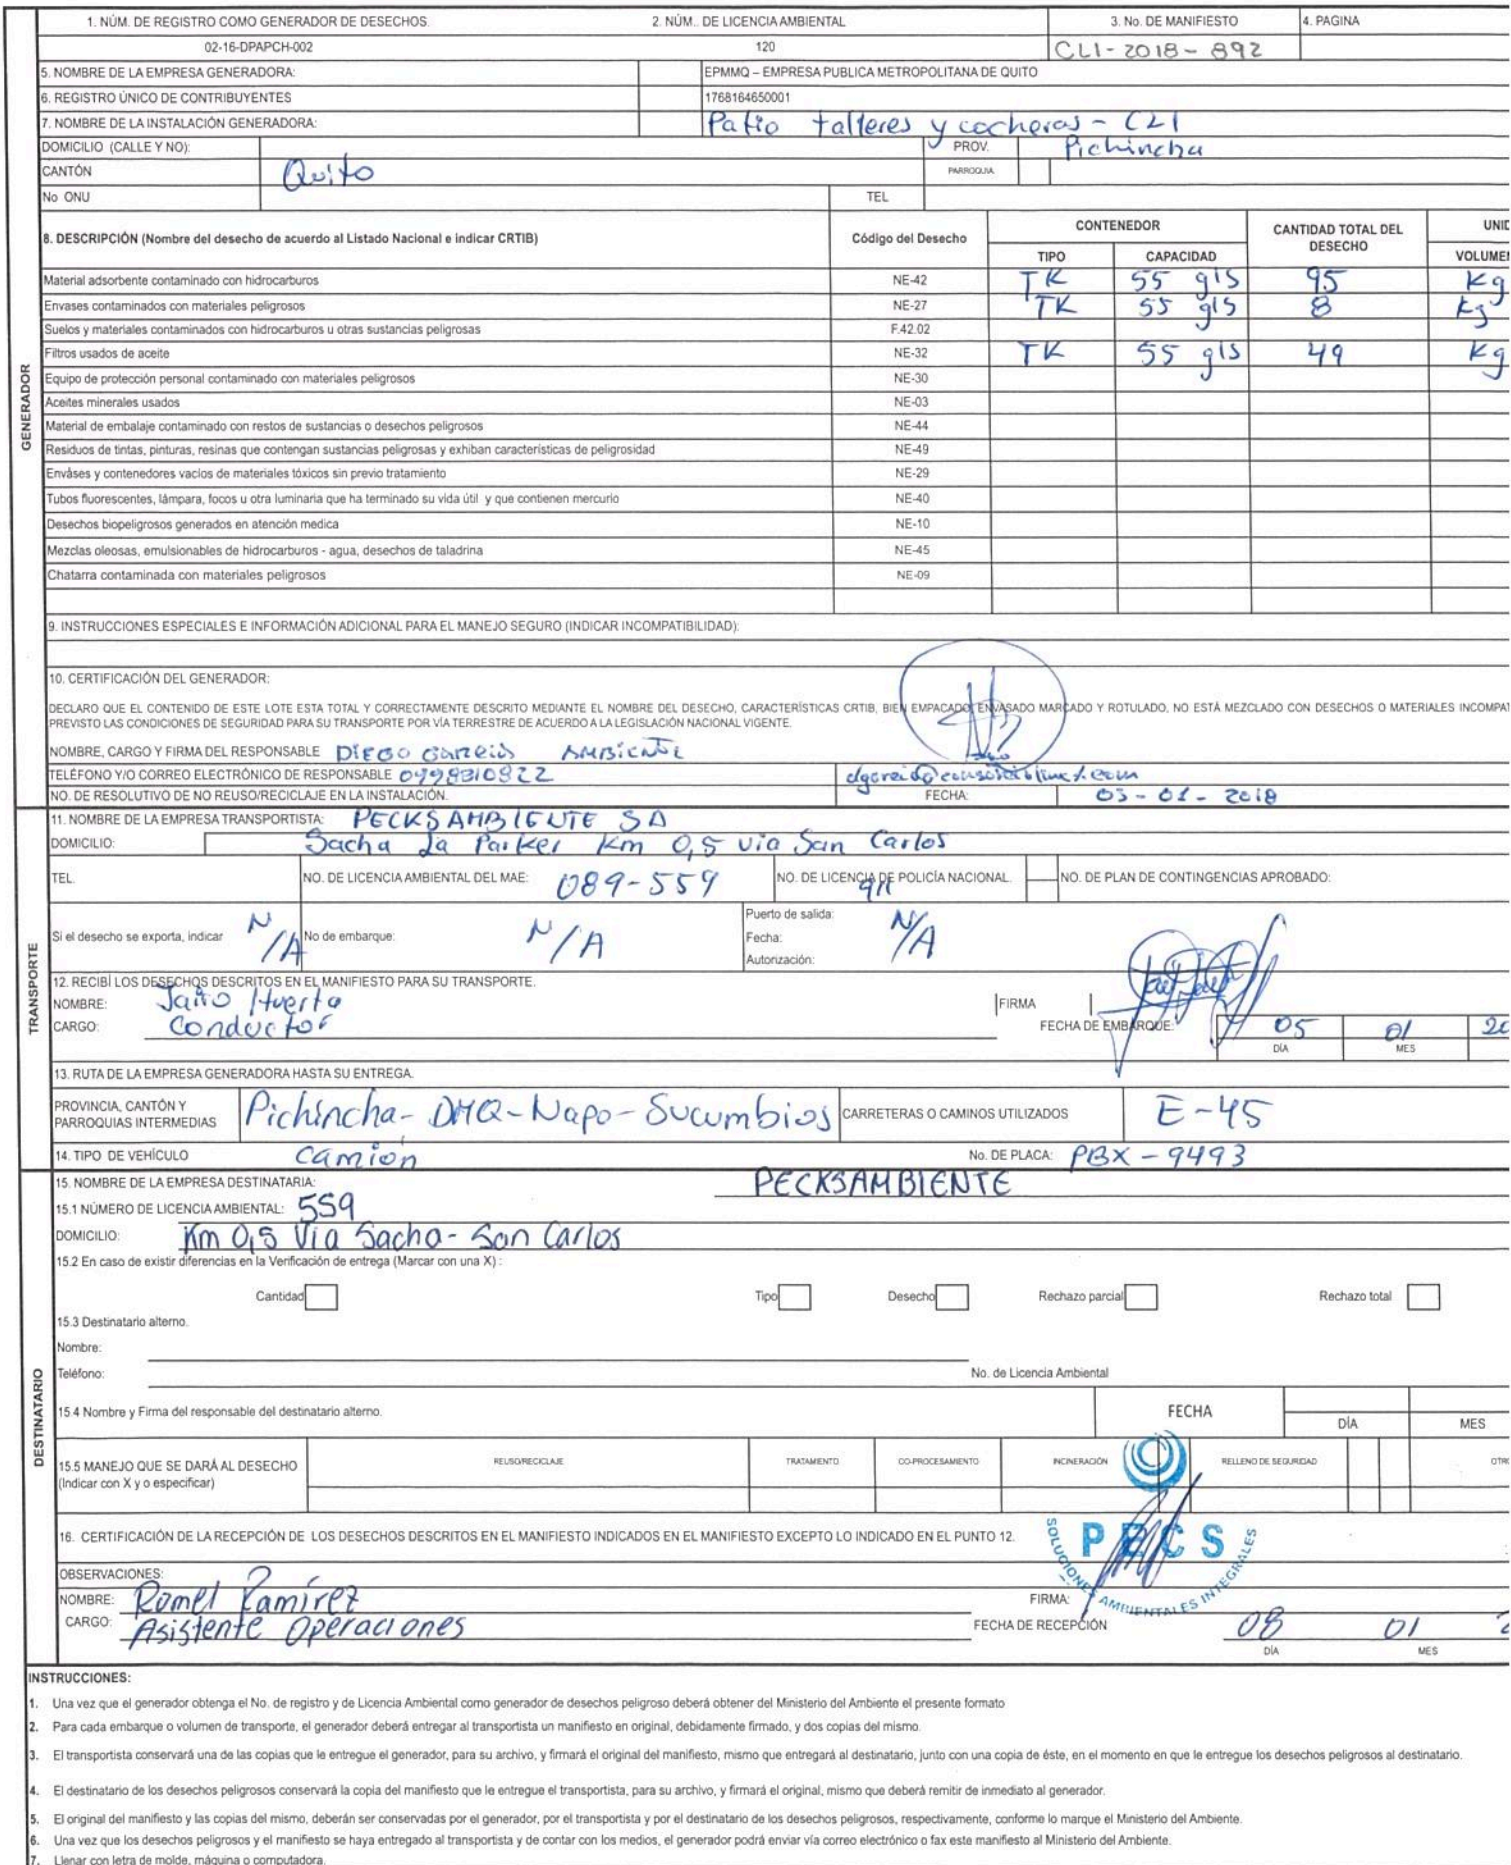 1. NÚM. DE REGISTRO COMO GENERADOR DE DESECHOS. 2. NÚM.. DE LICENCIA AMBIENTAL 3. No. DE MANIFIESTO 4. PAGINA
02-16-DPAPCH-002 120 CLI-2018-892
5. NOMBRE DE LA EMPRESA GENERADORA: EPMMQ – EMPRESA PUBLICA METROPOLITANA DE QUITO
6. REGISTRO ÚNICO DE CONTRIBUYENTES 1768164650001
7. NOMBRE DE LA INSTALACIÓN GENERADORA: Patio talleres y cocheras - CL1
DOMICILIO (CALLE Y NO): PROV. Pichincha
CANTÓN Quito PARROQUIA.
No ONU TEL
8. DESCRIPCIÓN (Nombre del desecho de acuerdo al Listado Nacional e indicar CRTIB) Código del Desecho CONTENEDOR CANTIDAD TOTAL DEL DESECHO UNID
TIPO CAPACIDAD VOLUMEN
Material adsorbente contaminado con hidrocarburos NE-42 TK 55 gls 95 Kg
Envases contaminados con materiales peligrosos NE-27 TK 55 gls 8 Kg
Suelos y materiales contaminados con hidrocarburos u otras sustancias peligrosas F.42.02
Filtros usados de aceite NE-32 TK 55 gls 49 Kg
Equipo de protección personal contaminado con materiales peligrosos NE-30
Aceites minerales usados NE-03
Material de embalaje contaminado con restos de sustancias o desechos peligrosos NE-44
Residuos de tintas, pinturas, resinas que contengan sustancias peligrosas y exhiban características de peligrosidad NE-49
Envâses y contenedores vacíos de materiales tóxicos sin previo tratamiento NE-29
Tubos fluorescentes, lámpara, focos u otra luminaria que ha terminado su vida útil y que contienen mercurio NE-40
Desechos biopeligrosos generados en atención medica NE-10
Mezclas oleosas, emulsionables de hidrocarburos - agua, desechos de taladrina NE-45
Chatarra contaminada con materiales peligrosos NE-09
9. INSTRUCCIONES ESPECIALES E INFORMACIÓN ADICIONAL PARA EL MANEJO SEGURO (INDICAR INCOMPATIBILIDAD):
10. CERTIFICACIÓN DEL GENERADOR:
DECLARO QUE EL CONTENIDO DE ESTE LOTE ESTA TOTAL Y CORRECTAMENTE DESCRITO MEDIANTE EL NOMBRE DEL DESECHO, CARACTERÍSTICAS CRTIB, BIEN EMPACADO, ENVASADO MARCADO Y ROTULADO, NO ESTÁ MEZCLADO CON DESECHOS O MATERIALES INCOMPAT
PREVISTO LAS CONDICIONES DE SEGURIDAD PARA SU TRANSPORTE POR VÍA TERRESTRE DE ACUERDO A LA LEGISLACIÓN NACIONAL VIGENTE.
NOMBRE, CARGO Y FIRMA DEL RESPONSABLE DIEGO GARCIA AMBIENTE
TELÉFONO Y/O CORREO ELECTRÓNICO DE RESPONSABLE 0998310822
NO. DE RESOLUTIVO DE NO REUSO/RECICLAJE EN LA INSTALACIÓN. FECHA: 05-01-2018
GENERADOR
11. NOMBRE DE LA EMPRESA TRANSPORTISTA: PECKSAMBIENTE SA
DOMICILIO: Sacha La Parker Km 0,5 via San Carlos
TEL. NO. DE LICENCIA AMBIENTAL DEL MAE: 089-559 NO. DE LICENCIA DE POLICÍA NACIONAL. NO. DE PLAN DE CONTINGENCIAS APROBADO:
Si el desecho se exporta, indicar N/A No de embarque: N/A Puerto de salida: N/A
Fecha:
Autorización:
12. RECIBÍ LOS DESECHOS DESCRITOS EN EL MANIFIESTO PARA SU TRANSPORTE.
NOMBRE: Jairo Huerta FIRMA
CARGO: Conductor FECHA DE EMBARQUE: 05 01 20
DÍA MES
13. RUTA DE LA EMPRESA GENERADORA HASTA SU ENTREGA.
PROVINCIA, CANTÓN Y PARROQUIAS INTERMEDIAS Pichincha - DMQ - Napo - Sucumbios CARRETERAS O CAMINOS UTILIZADOS E-45
14. TIPO DE VEHÍCULO Camión No. DE PLACA: PBX - 9493
TRANSPORTE
15. NOMBRE DE LA EMPRESA DESTINATARIA: PECKSAMBIENTE
15.1 NÚMERO DE LICENCIA AMBIENTAL: 559
DOMICILIO: Km 0,5 Via Sacha - San Carlos
15.2 En caso de existir diferencias en la Verificación de entrega (Marcar con una X) :
Cantidad Tipo Desecho Rechazo parcial Rechazo total
15.3 Destinatario alterno.
Nombre:
Teléfono: No. de Licencia Ambiental
15.4 Nombre y Firma del responsable del destinatario alterno. FECHA DÍA MES
15.5 MANEJO QUE SE DARÁ AL DESECHO REUSO/RECICLAJE TRATAMIENTO CO-PROCESAMIENTO INCINERACIÓN RELLENO DE SEGURIDAD OTRO
(Indicar con X y o especificar)
16. CERTIFICACIÓN DE LA RECEPCIÓN DE LOS DESECHOS DESCRITOS EN EL MANIFIESTO INDICADOS EN EL MANIFIESTO EXCEPTO LO INDICADO EN EL PUNTO 12.
PECS
SOLUCIONES AMBIENTALES INTEGRALES
OBSERVACIONES:
NOMBRE: Romel Ramírez FIRMA:
CARGO: Asistente Operaciones FECHA DE RECEPCIÓN 08 01 2
DÍA MES
DESTINATARIO
INSTRUCCIONES:
1. Una vez que el generador obtenga el No. de registro y de Licencia Ambiental como generador de desechos peligroso deberá obtener del Ministerio del Ambiente el presente formato
2. Para cada embarque o volumen de transporte, el generador deberá entregar al transportista un manifiesto en original, debidamente firmado, y dos copias del mismo.
3. El transportista conservará una de las copias que le entregue el generador, para su archivo, y firmará el original del manifiesto, mismo que entregará al destinatario, junto con una copia de éste, en el momento en que le entregue los desechos peligrosos al destinatario.
4. El destinatario de los desechos peligrosos conservará la copia del manifiesto que le entregue el transportista, para su archivo, y firmará el original, mismo que deberá remitir de inmediato al generador.
5. El original del manifiesto y las copias del mismo, deberán ser conservadas por el generador, por el transportista y por el destinatario de los desechos peligrosos, respectivamente, conforme lo marque el Ministerio del Ambiente.
6. Una vez que los desechos peligrosos y el manifiesto se haya entregado al transportista y de contar con los medios, el generador podrá enviar vía correo electrónico o fax este manifiesto al Ministerio del Ambiente.
7. Llenar con letra de molde, máquina o computadora.